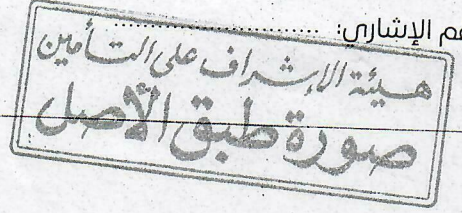 الإشاري: ........................
هيئة الإشراف على التأمين
صورة طبق الأصل